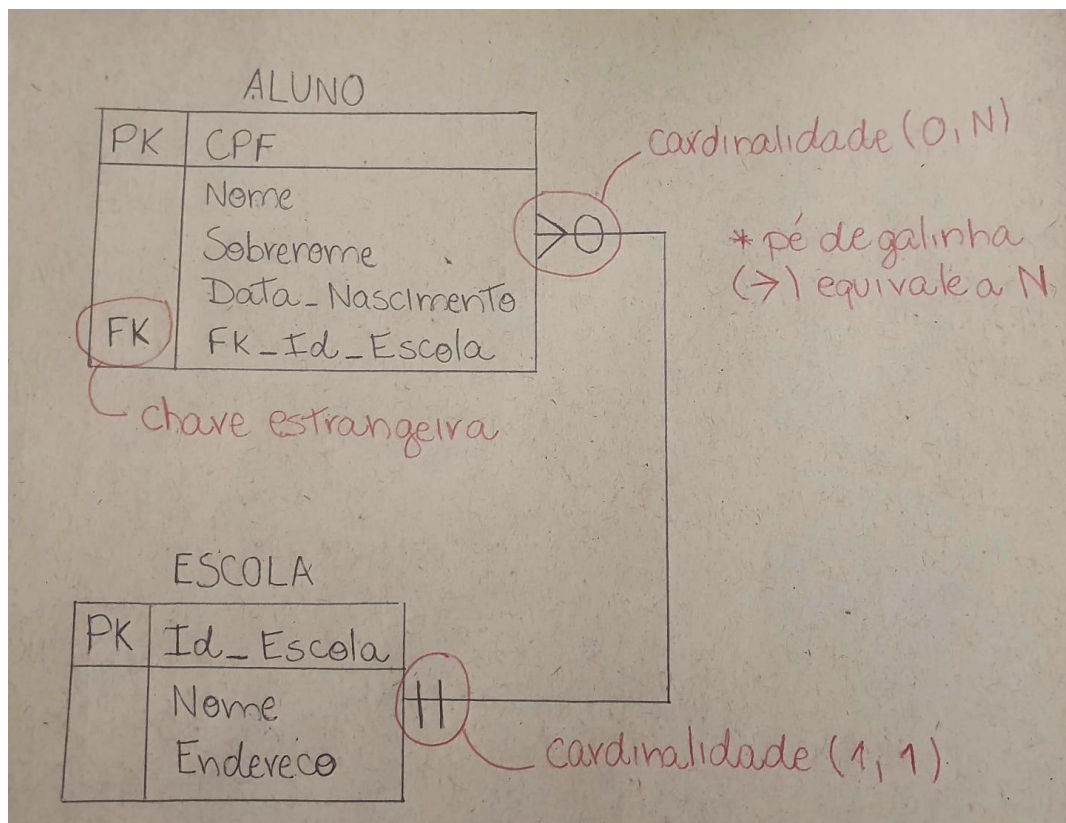 ALUNO
PK CPF
Nome
Sobrenome
Data_Nascimento
FK FK_Id_Escola
chave estrangeira
cardinalidade (0,N)
* pé de galinha
(→) equivale a N
ESCOLA
PK Id_Escola
Nome
Endereco
cardinalidade (1,1)